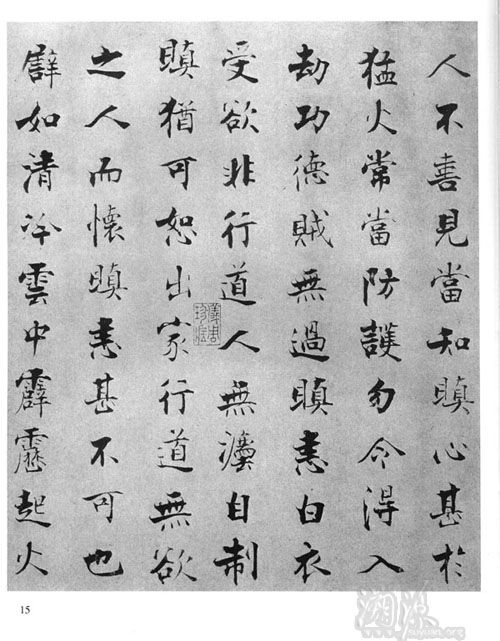 人不喜見當知瞋心甚於
猛火常當防護勿令得入
劫功德賊無過瞋恚白衣
受欲非行道人無灋自制
瞋猶可恕出家行道無欲
之人而懷瞋恚甚不可也
譬如清冷雲中霹靂起火
15
www.yuyuan.org